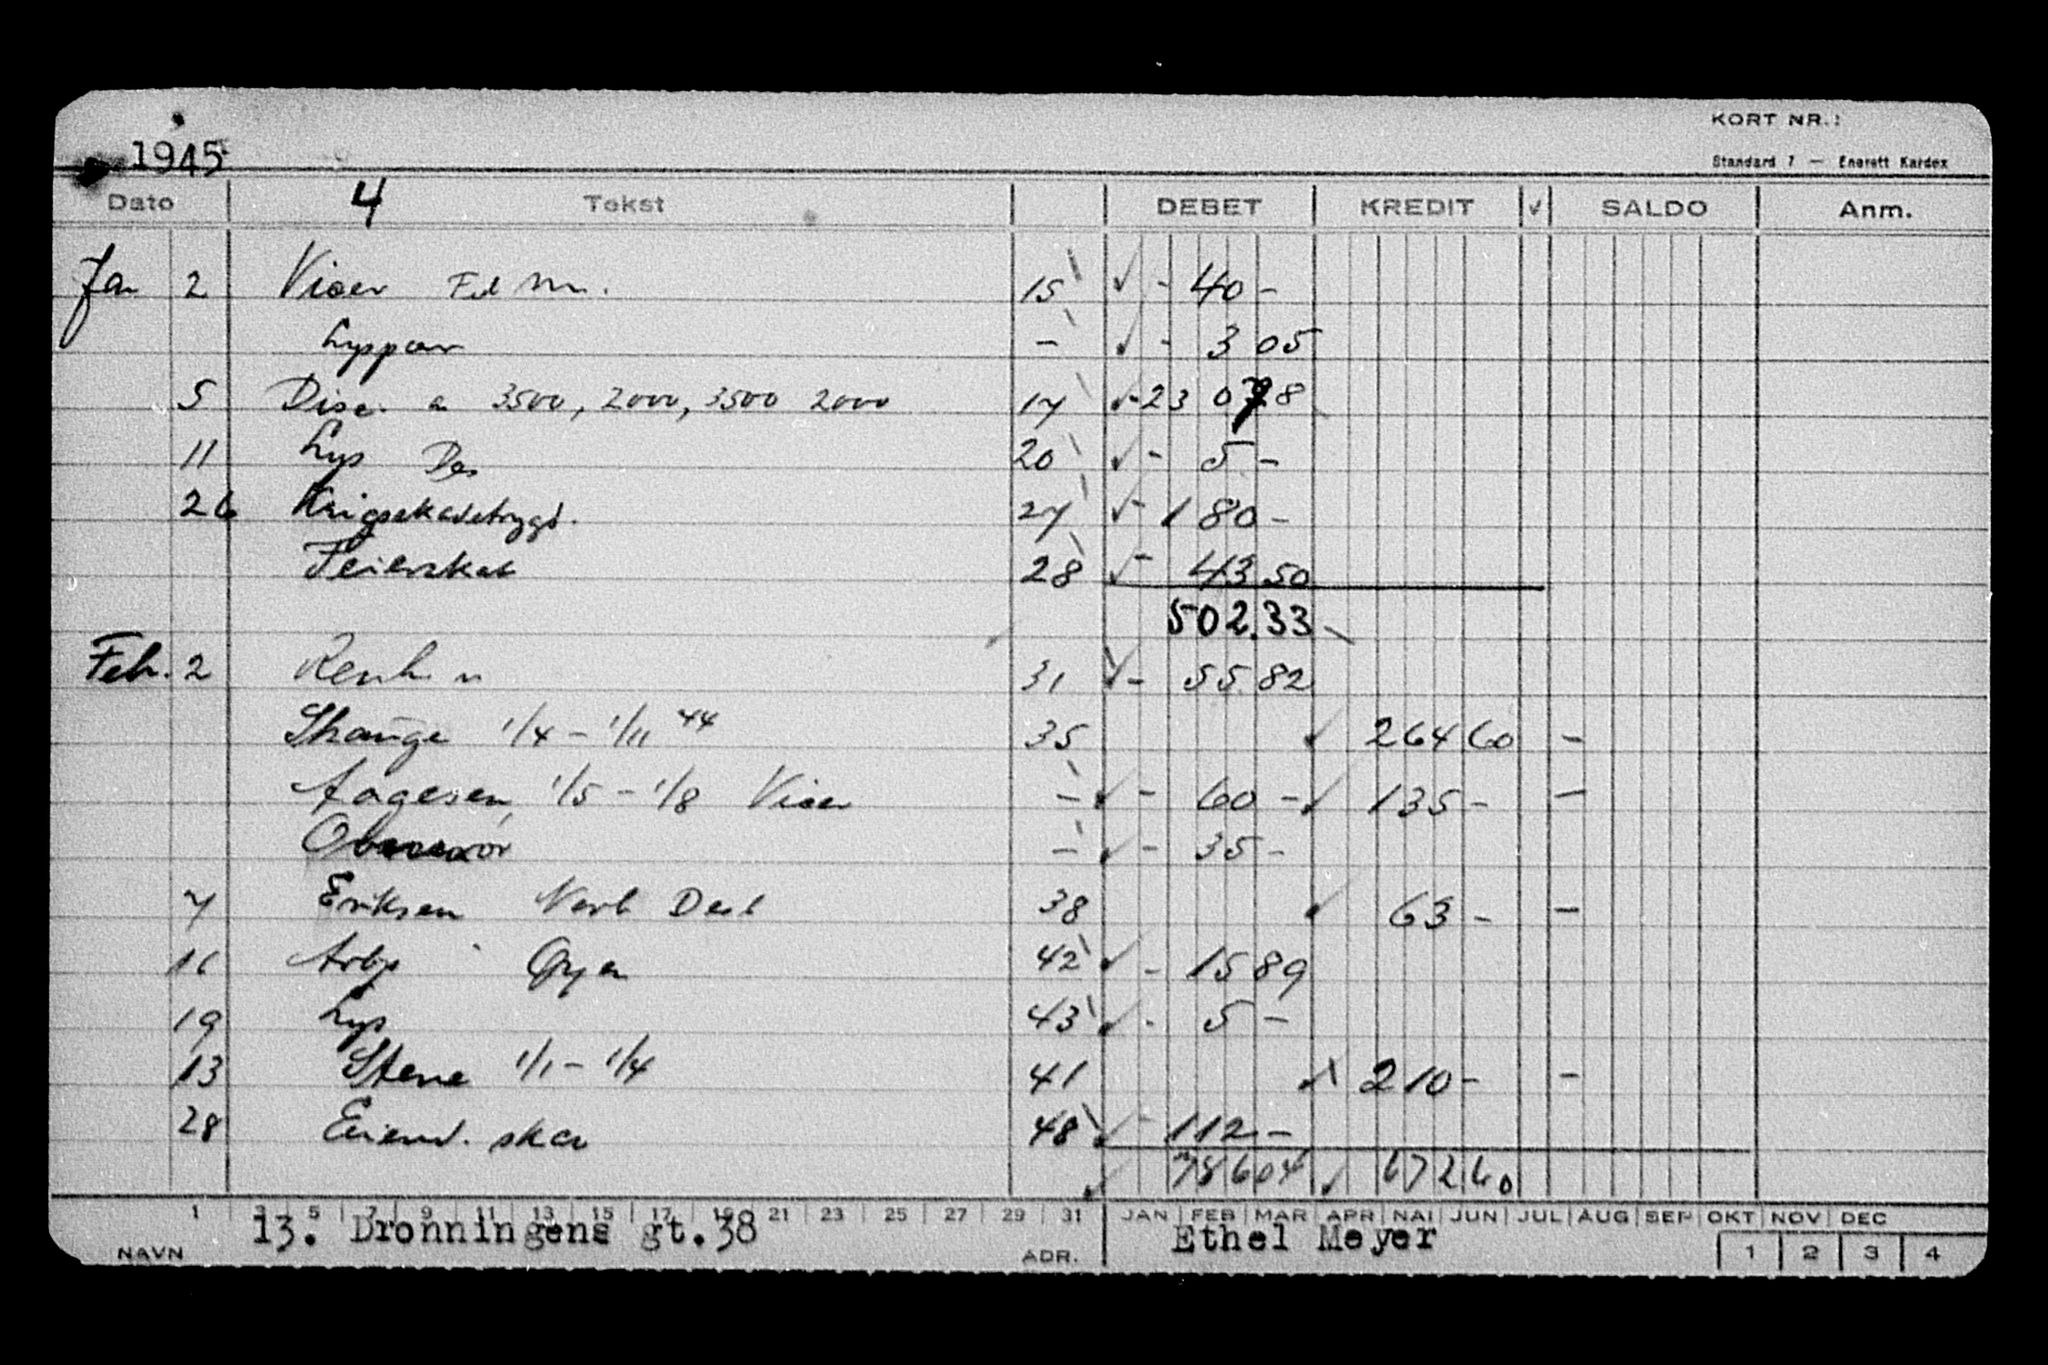 KORT NR.:
1945
Standard 7 — Enerett Kardex
Dato 4 Tekst DEBET KREDIT √ SALDO Anm.
Jan 2 Viser Fed 15 √ - 40 -
Lyspær - √ - 3 05
5 Disc. a 3500, 2000, 3500 2000 17 √ - 230 78
11 Lys Des 20 √ - 5 -
26 Krigsskadetrygd. 27 √ - 180 -
Feierskat 28 √ - 43 50
502.33
Feb. 2 Renh. 31 √ - 55 82
Skange 1/4 - 1/11 44 35 √ 264 60 -
Aagesen 1/5 - 1/8 Viser - √ - 60 - √ 135 - -
- √ - 35 -
7 Eriksen Des 38 √ 63 - -
16 42 √ - 15 89
19 Lys 43 √ - 5 -
13 Stene 1/1 - 1/4 41 √ 210 - -
28 Eiend. skat 48 √ - 112 -
√ 786 04 √ 672 60
1 3 5 7 9 11 13 15 17 19 21 23 25 27 29 31 JAN FEB MAR APR MAI JUN JUL AUG SEP OKT NOV DEC
NAVN 13. Dronningens gt.38 ADR. Ethel Meyer 1 2 3 4